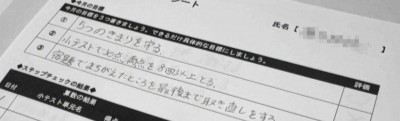 シート
氏名【 】
◆今月の目標
今月の目標を3つ書きましょう。できるだけ具体的な目標にしましょう。
評価
① 5つのきまりを守る。
② 小テストで七点、満点を8回以上とる。
③ 宿題でまちがえたところを最後まで取り直しをする。
◆ステップチェックの結果◆
算数の結果
日付
小テスト単元名